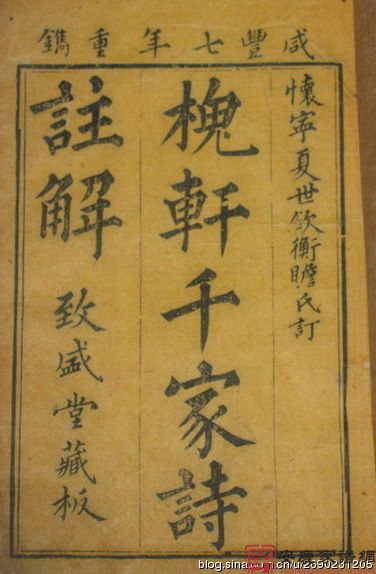 咸豐七年重鐫
懷寧夏世欽衡瞻氏訂
槐軒千家詩
註解
致盛堂藏板
安慶家譜網
blog.sina.com.cn/u/2390231205